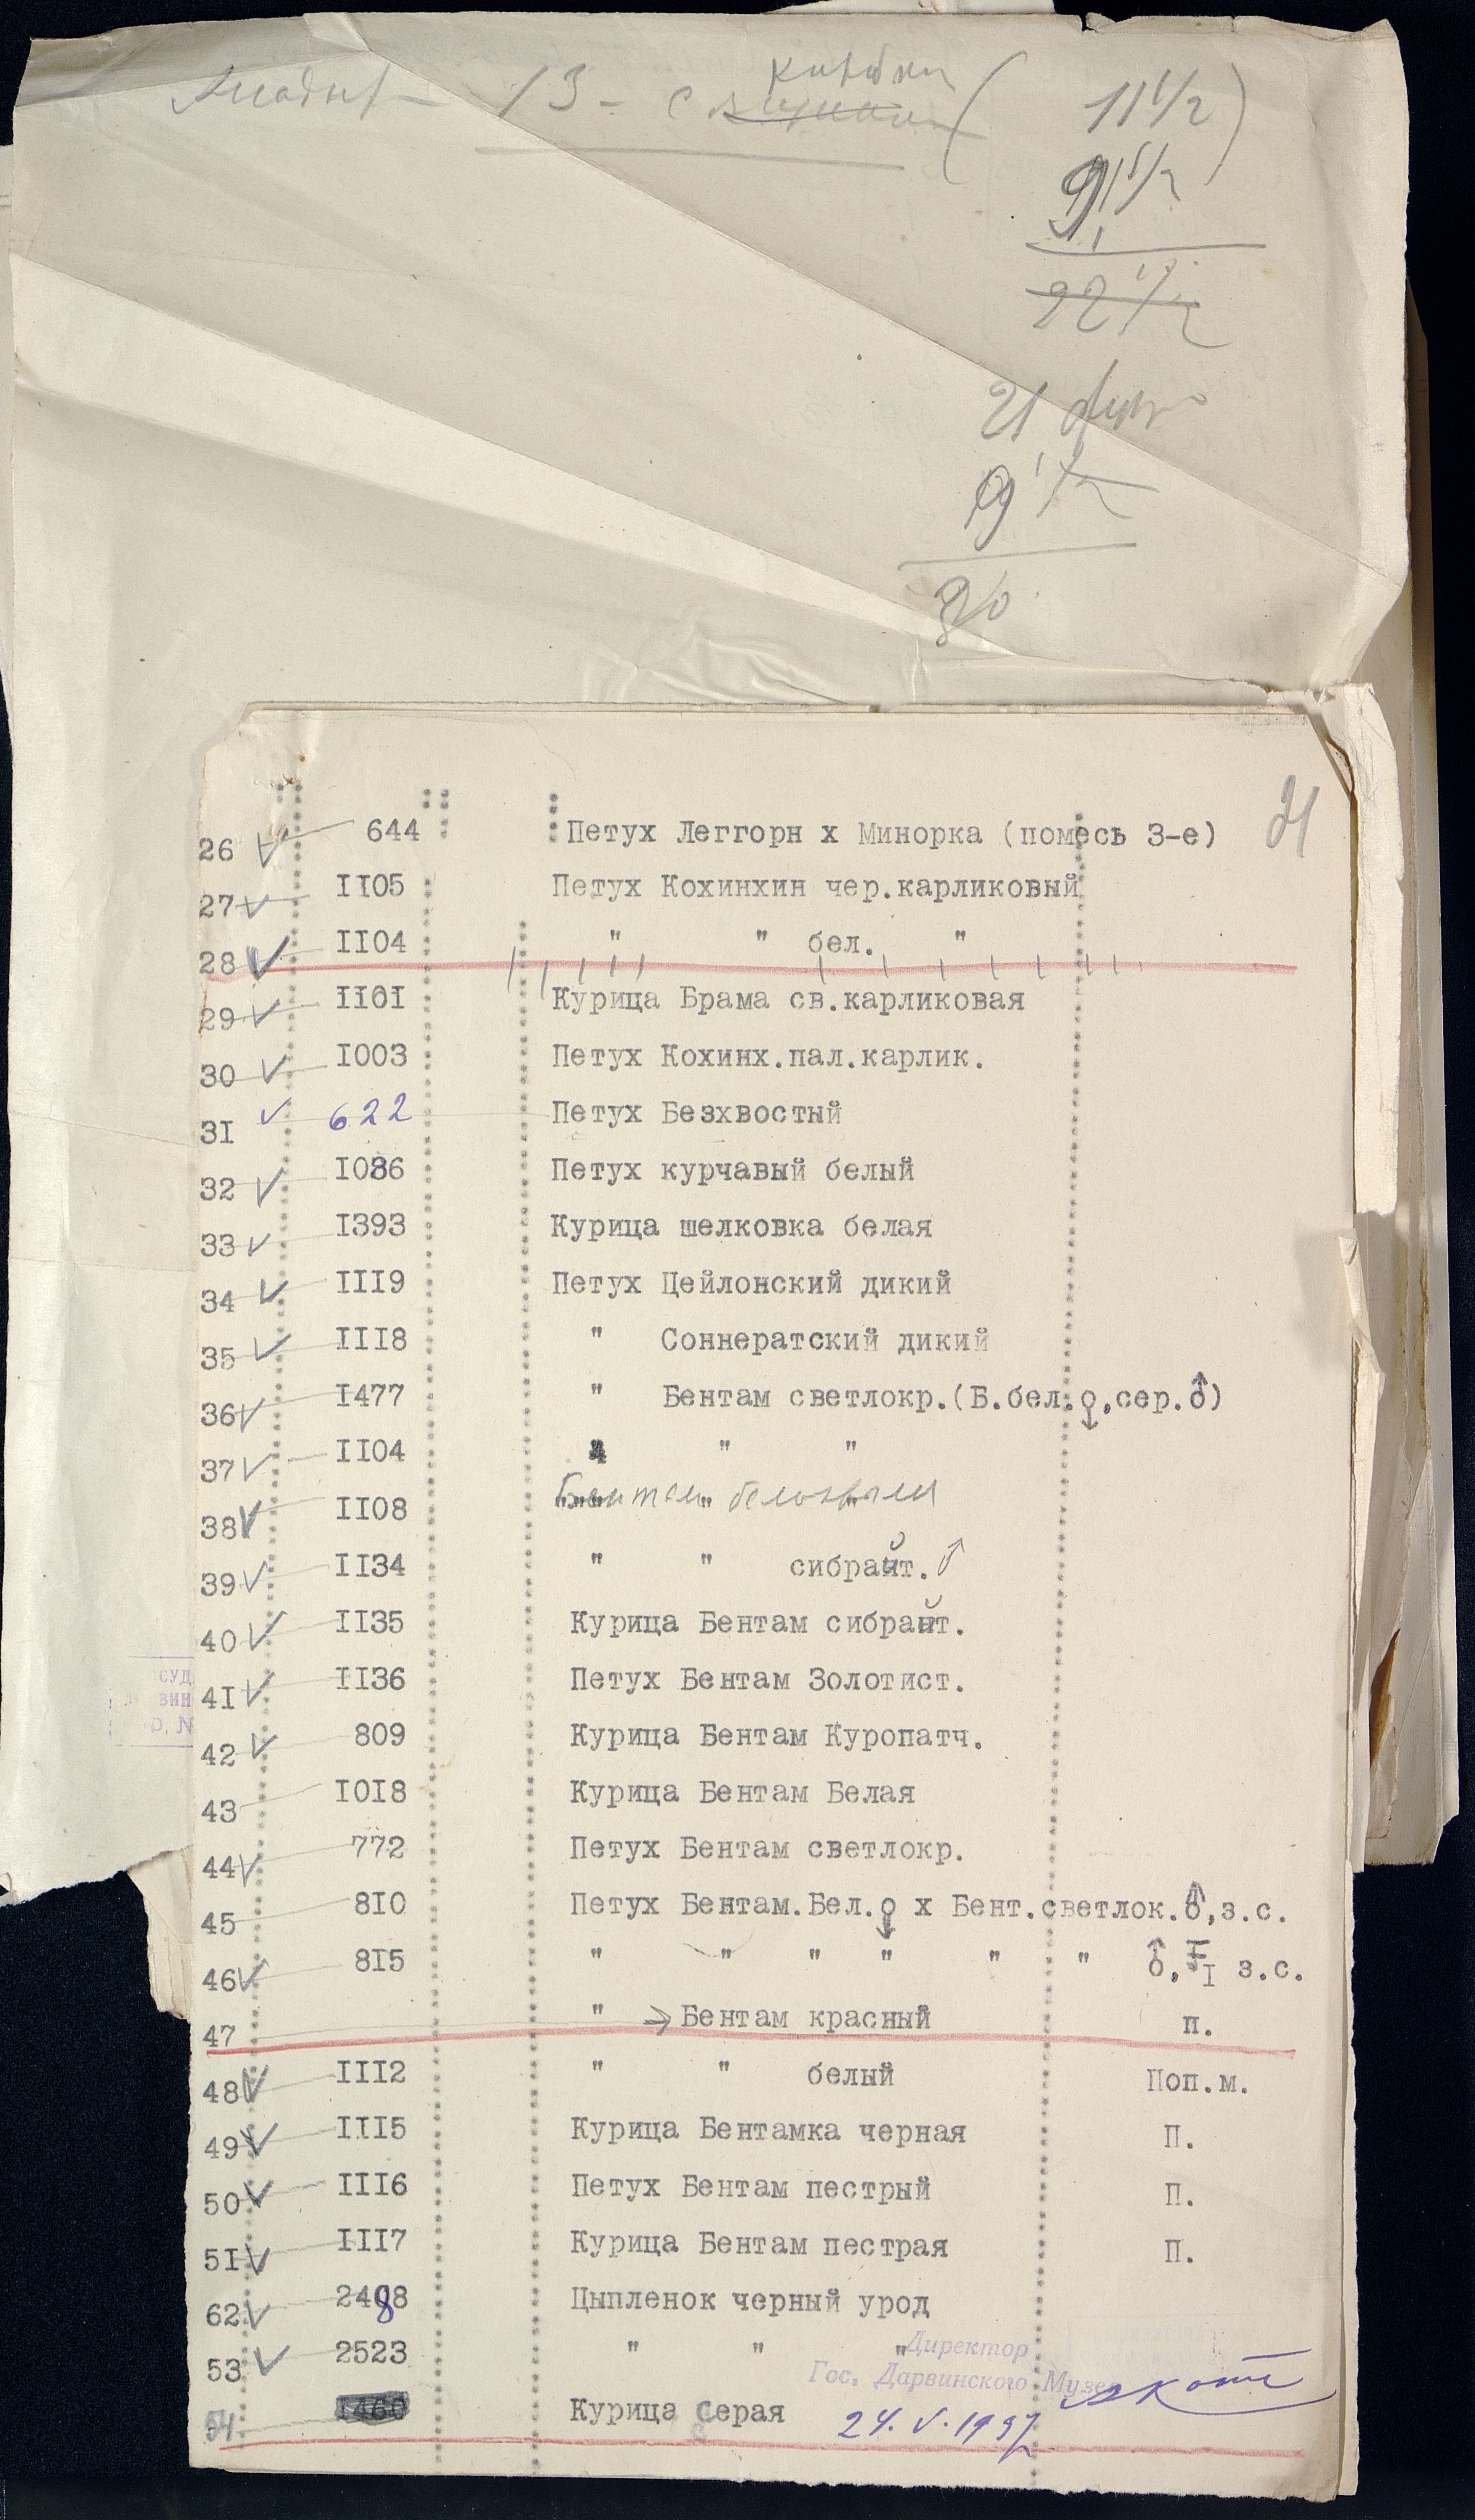 13 - с
11 1/2)
9 1/2
22 1/2
21
9 1/2
30
21
26 644 Петух Леггорн х Минорка (помесь 3-е)
27 II05 Петух Кохинхин чер.карликовый
28 II04 " " бел. "
29 II0I Курица Брама св.карликовая
30 I003 Петух Кохинх.пал.карлик.
3I 622 Петух Безхвостый
32 I086 Петух курчавый белый
33 I393 Курица шелковка белая
34 III9 Петух Цейлонский дикий
35 III8 " Соннератский дикий
36 I477 " Бентам светлокр.(Б.бел.♀,сер.♂)
37 II04 " " "
38 II08 Бентам
39 II34 " " сибрайт. ♂
40 II35 Курица Бентам сибрайт.
4I II36 Петух Бентам Золотист.
42 809 Курица Бентам Куропатч.
43 I0I8 Курица Бентам Белая
44 772 Петух Бентам светлокр.
45 8I0 Петух Бентам.Бел.♀ х Бент.светлок.♂,з.с.
46 8I5 " " " " " " ♂, F I з.с.
47 " Бентам красный п.
48 III2 " " белый Поп.м.
49 III5 Курица Бентамка черная П.
50 III6 Петух Бентам пестрый П.
5I III7 Курица Бентам пестрая П.
62 2498 Цыпленок черный урод
53 2523 " " "
Директор
Гос. Дарвинского Музея АКотс
54. I460 Курица Серая 24.V.1937